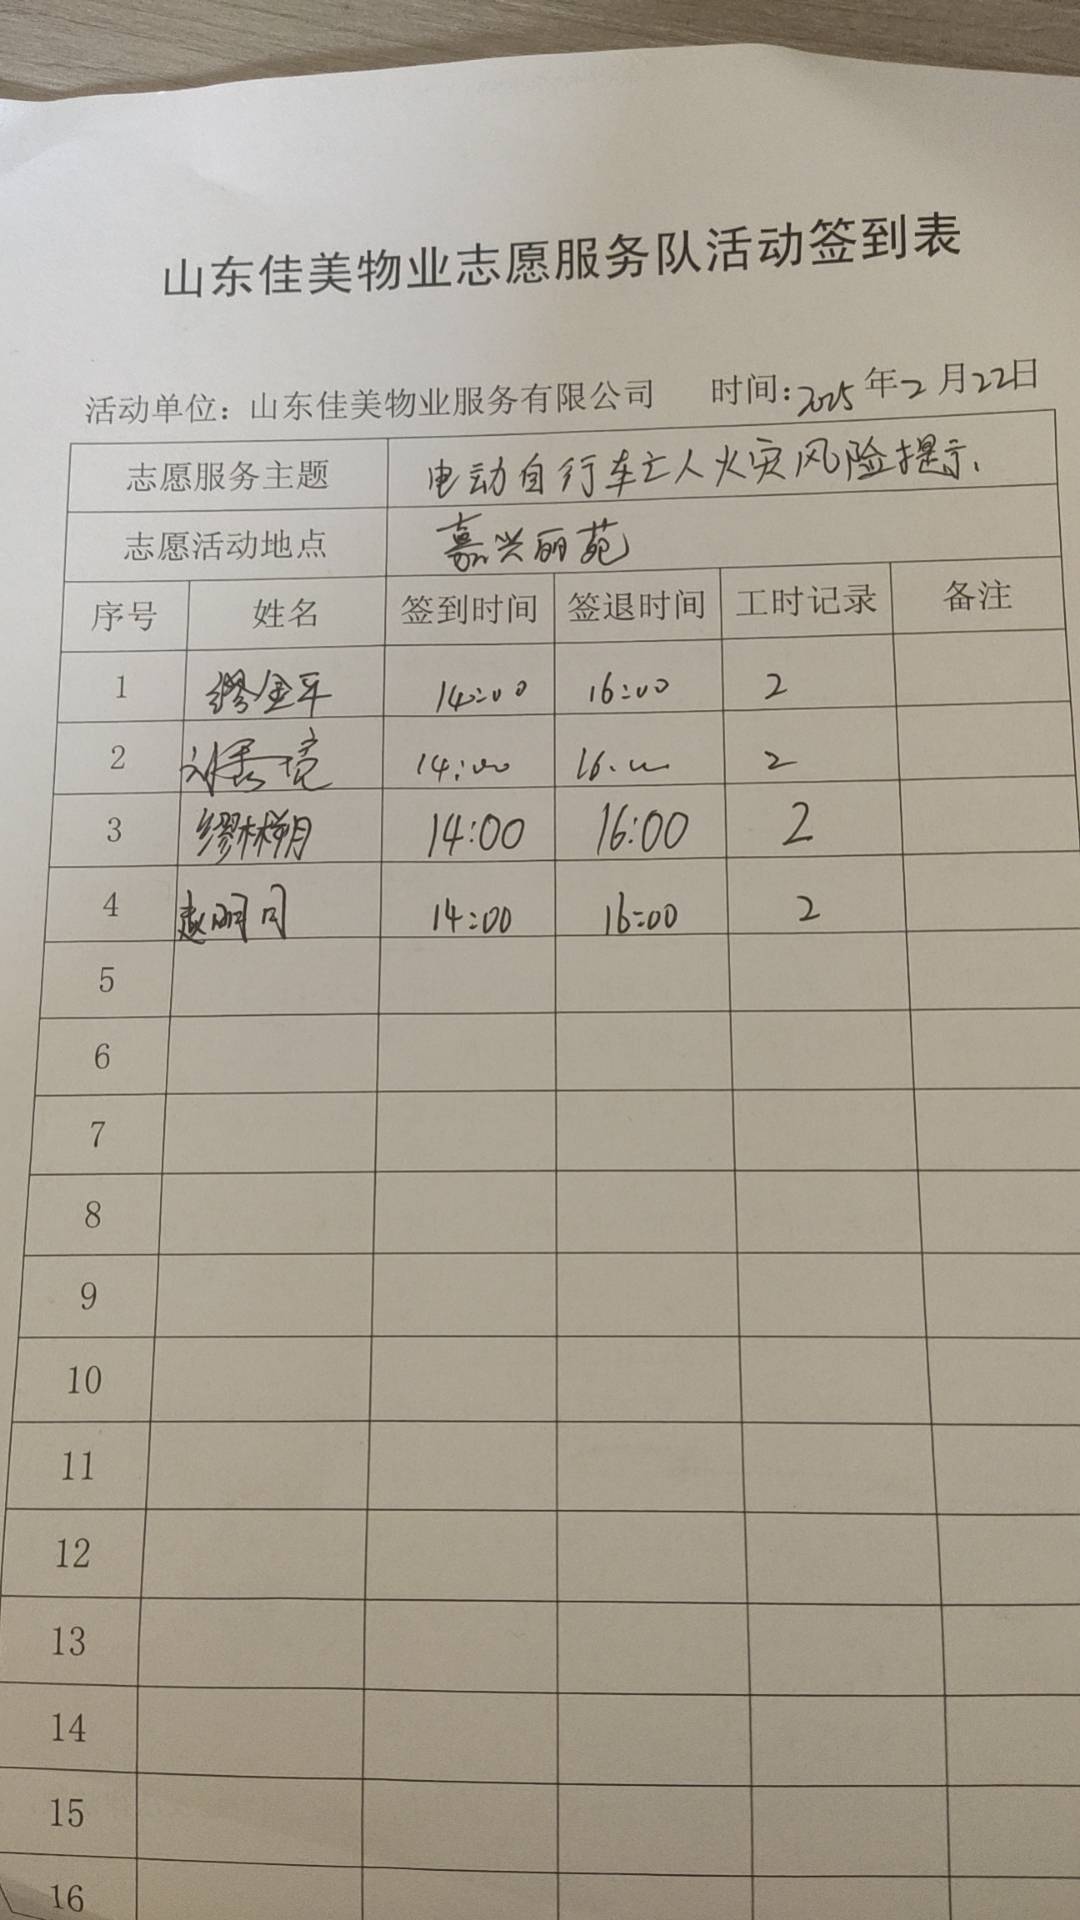 山东佳美物业志愿服务队活动签到表
活动单位：山东佳美物业服务有限公司 时间：2025年2月22日
志愿服务主题 电动自行车亡人火灾风险提示.
志愿活动地点 嘉兴丽苑
序号 姓名 签到时间 签退时间 工时记录 备注
1 缪金平 14:00 16:00 2
2 14:00 16:00 2
3 14:00 16:00 2
4 14:00 16:00 2
5
6
7
8
9
10
11
12
13
14
15
16